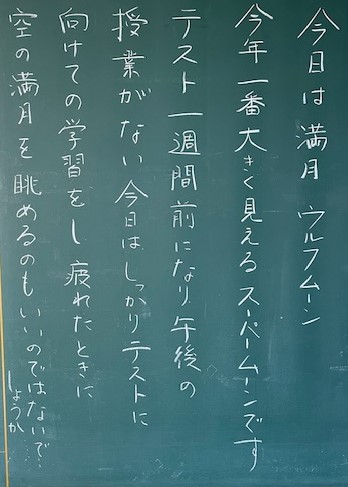 今日は満月 ウルフムーン
今年一番大きく見えるスーパームーンです
テスト一週間前になり午後の
授業がない 今日はしっかりテストに
向けての学習をし 疲れたときに
空の満月を眺めるのもいいのではないで
しょうか